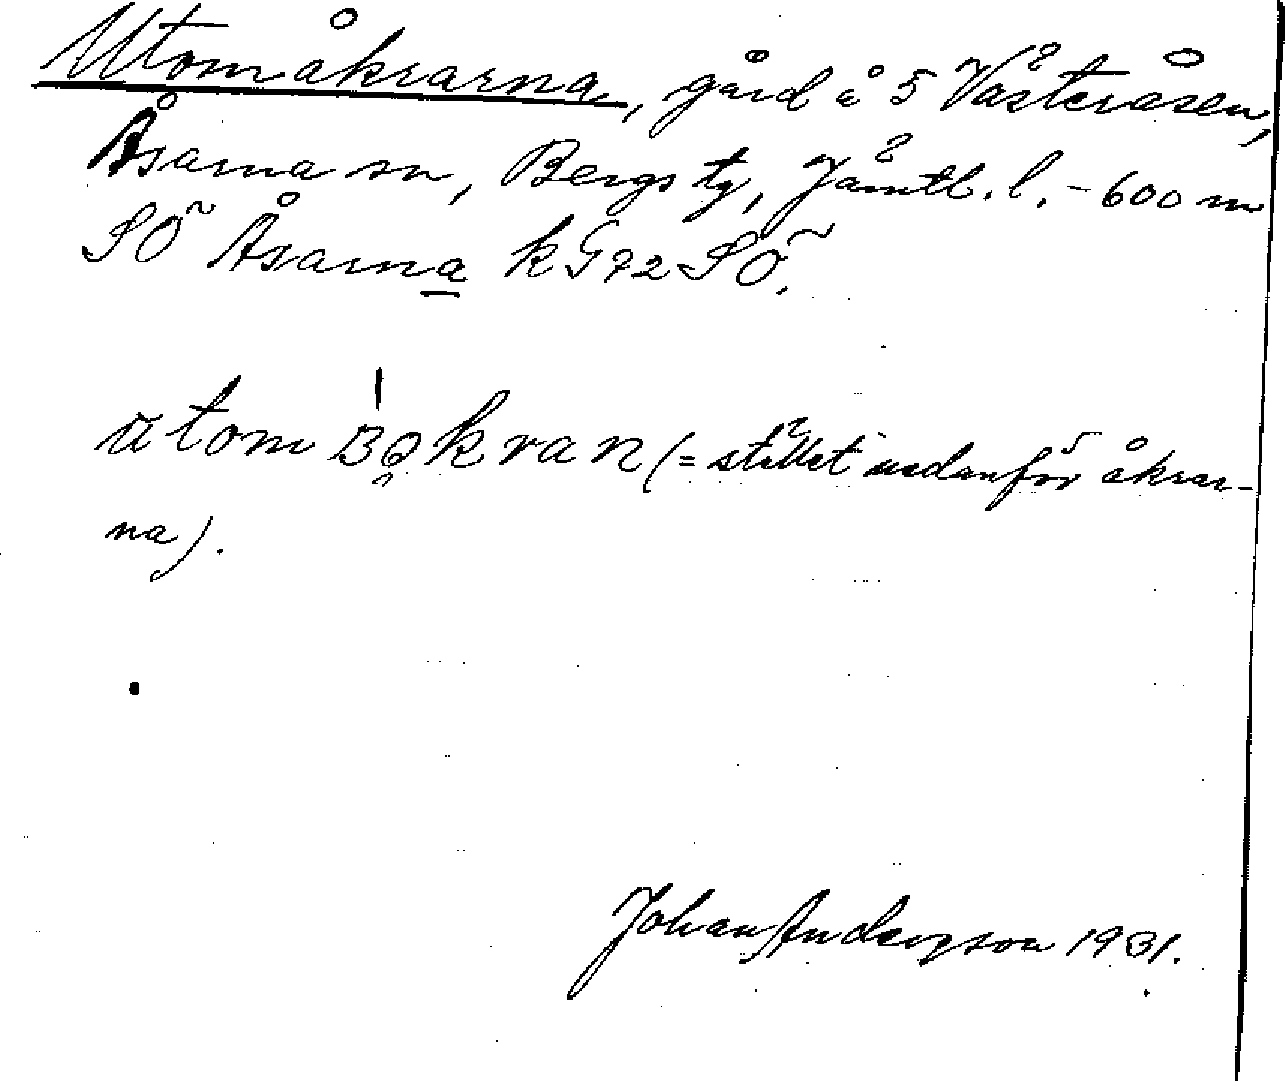 Utomåkrarna, gård å 5 Västeråsen,
Åsarna sn, Bergs tg, Jämtl. l. - 600 m
SÖ Åsarna k G72 SÖ.
(= stället nedanför åkrar-
na).
Johan Anderson 1931.